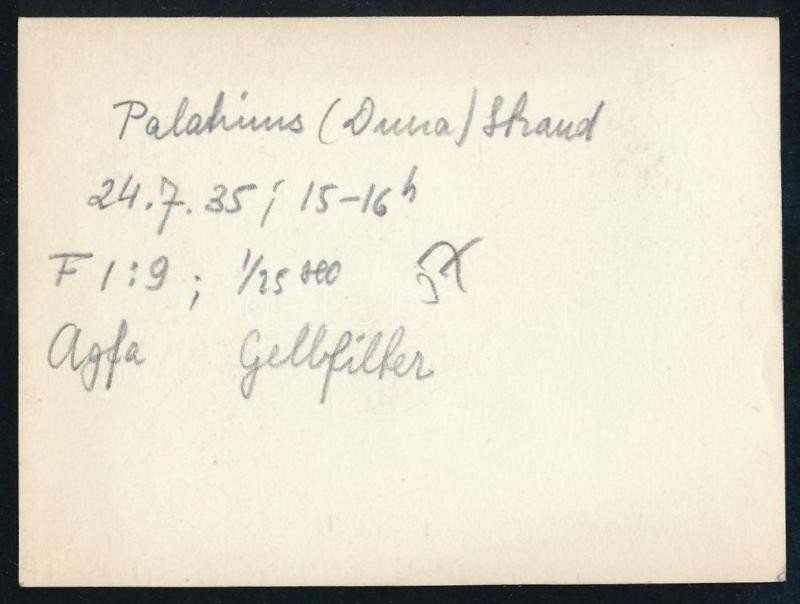 Palatinus (Duna) Strand
24.7.35; 15-16h
F 1:9; 1/25 sec
Agfa Gelbfilter
darabanth